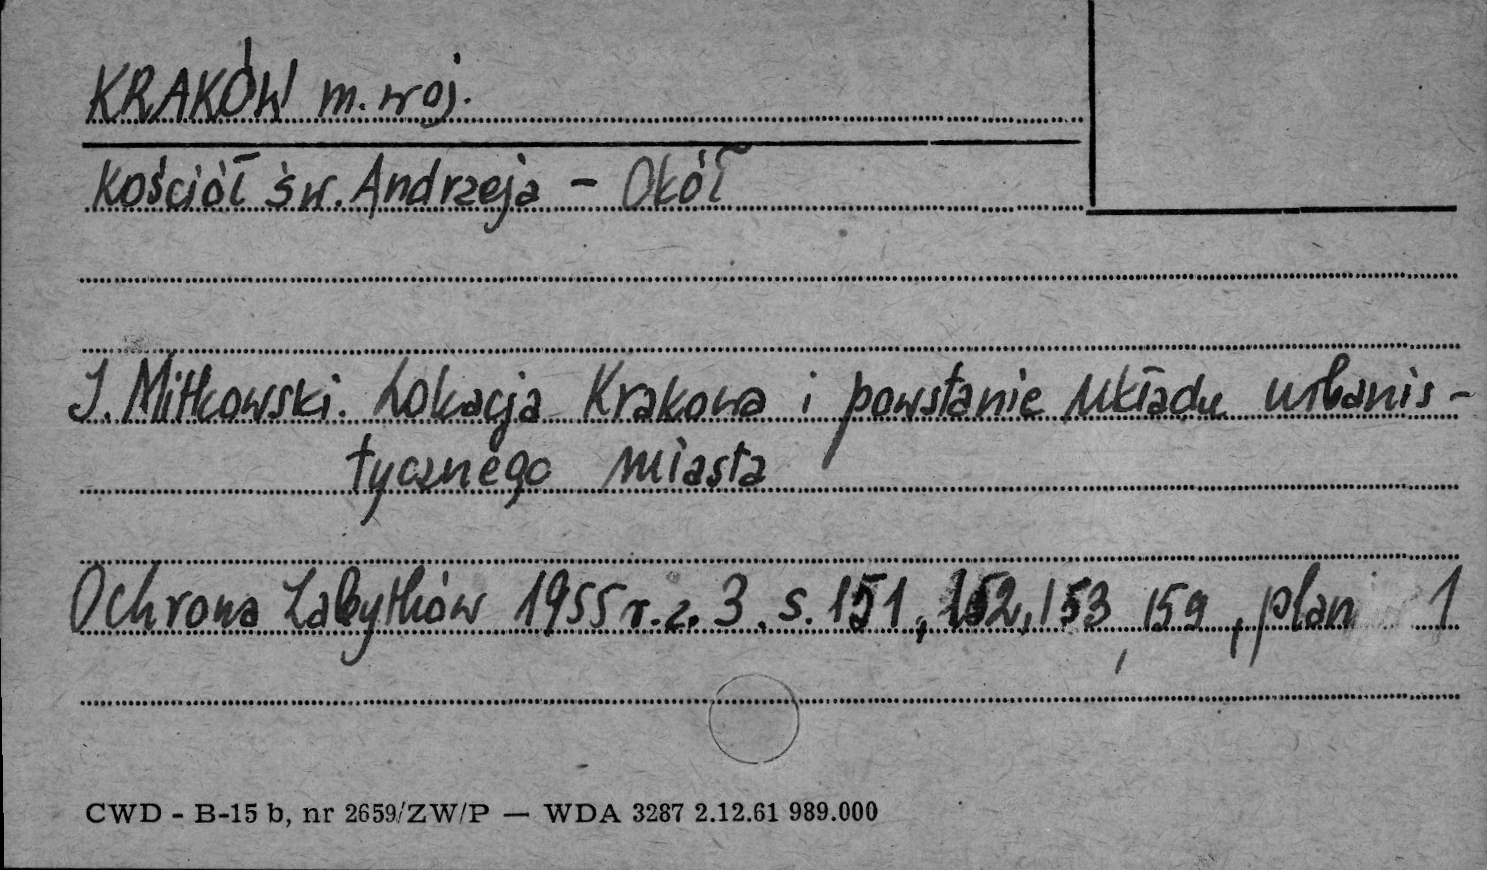 KRAKÓW m. woj.
Kościół św. Andrzeja - Okół
J. Mitkowski. Lokacja Krakowa i powstanie układu urbanis-
tycznego miasta
Ochrona Zabytków 1955 r. z. 3. s. 151, 152, 153, 159, plan 1
CWD - B-15 b, nr 2659/ZW/P — WDA 3287 2.12.61 989.000